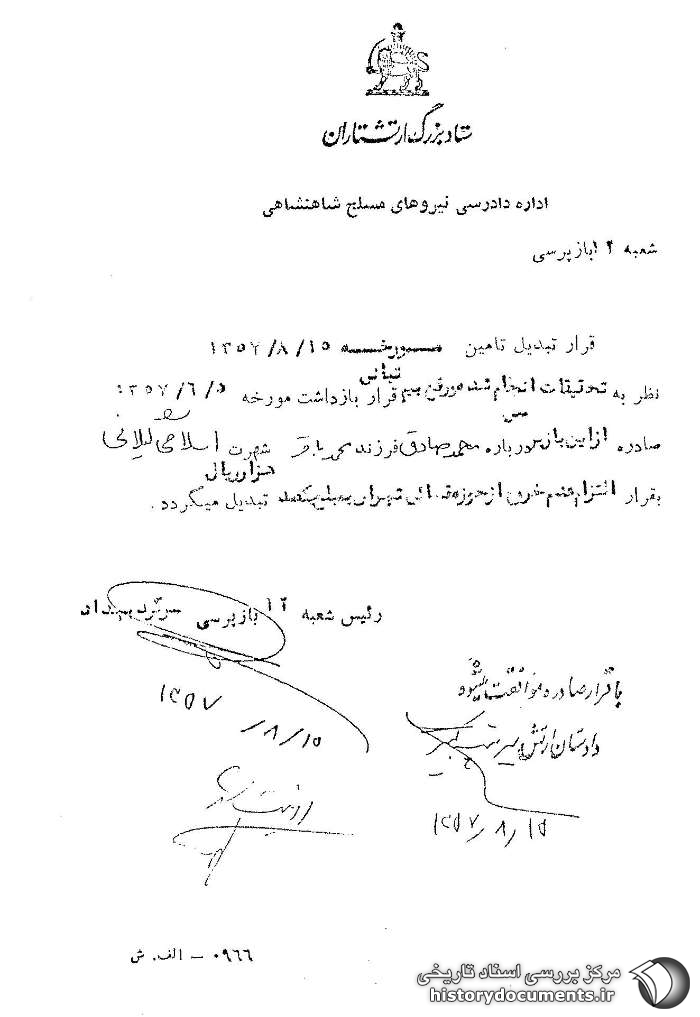 ستاد بزرگ ارتشتاران
اداره دادرسی نیروهای مسلح شاهنشاهی
شعبه ۱۲ بازپرسی
قرار تبدیل تامین مورخه ۱۳۵۷/۸/۱۵
نظر به تحقیقات انجام شده قرار بازداشت مورخه ۱۳۵۷/۶/۵
صادره از این درباره محمد صادق فرزند محمد باقر شهرت اسلامی گیلانی
بقرار التزام عدم خروج از حوزه قضائی تهران بمبلغ یکصد هزار ریال تبدیل میگردد.
رئیس شعبه ۱۲ بازپرسی سرگرد بهداد
۱۳۵۷/۸/۱۵
با قرار صادره موافقت میشود
دادستان ارتش
۱۳۵۷/۸/۱۵
رویت شد
۰۹۶۶ – الف. ش
مرکز بررسی اسناد تاریخی
historydocuments.ir